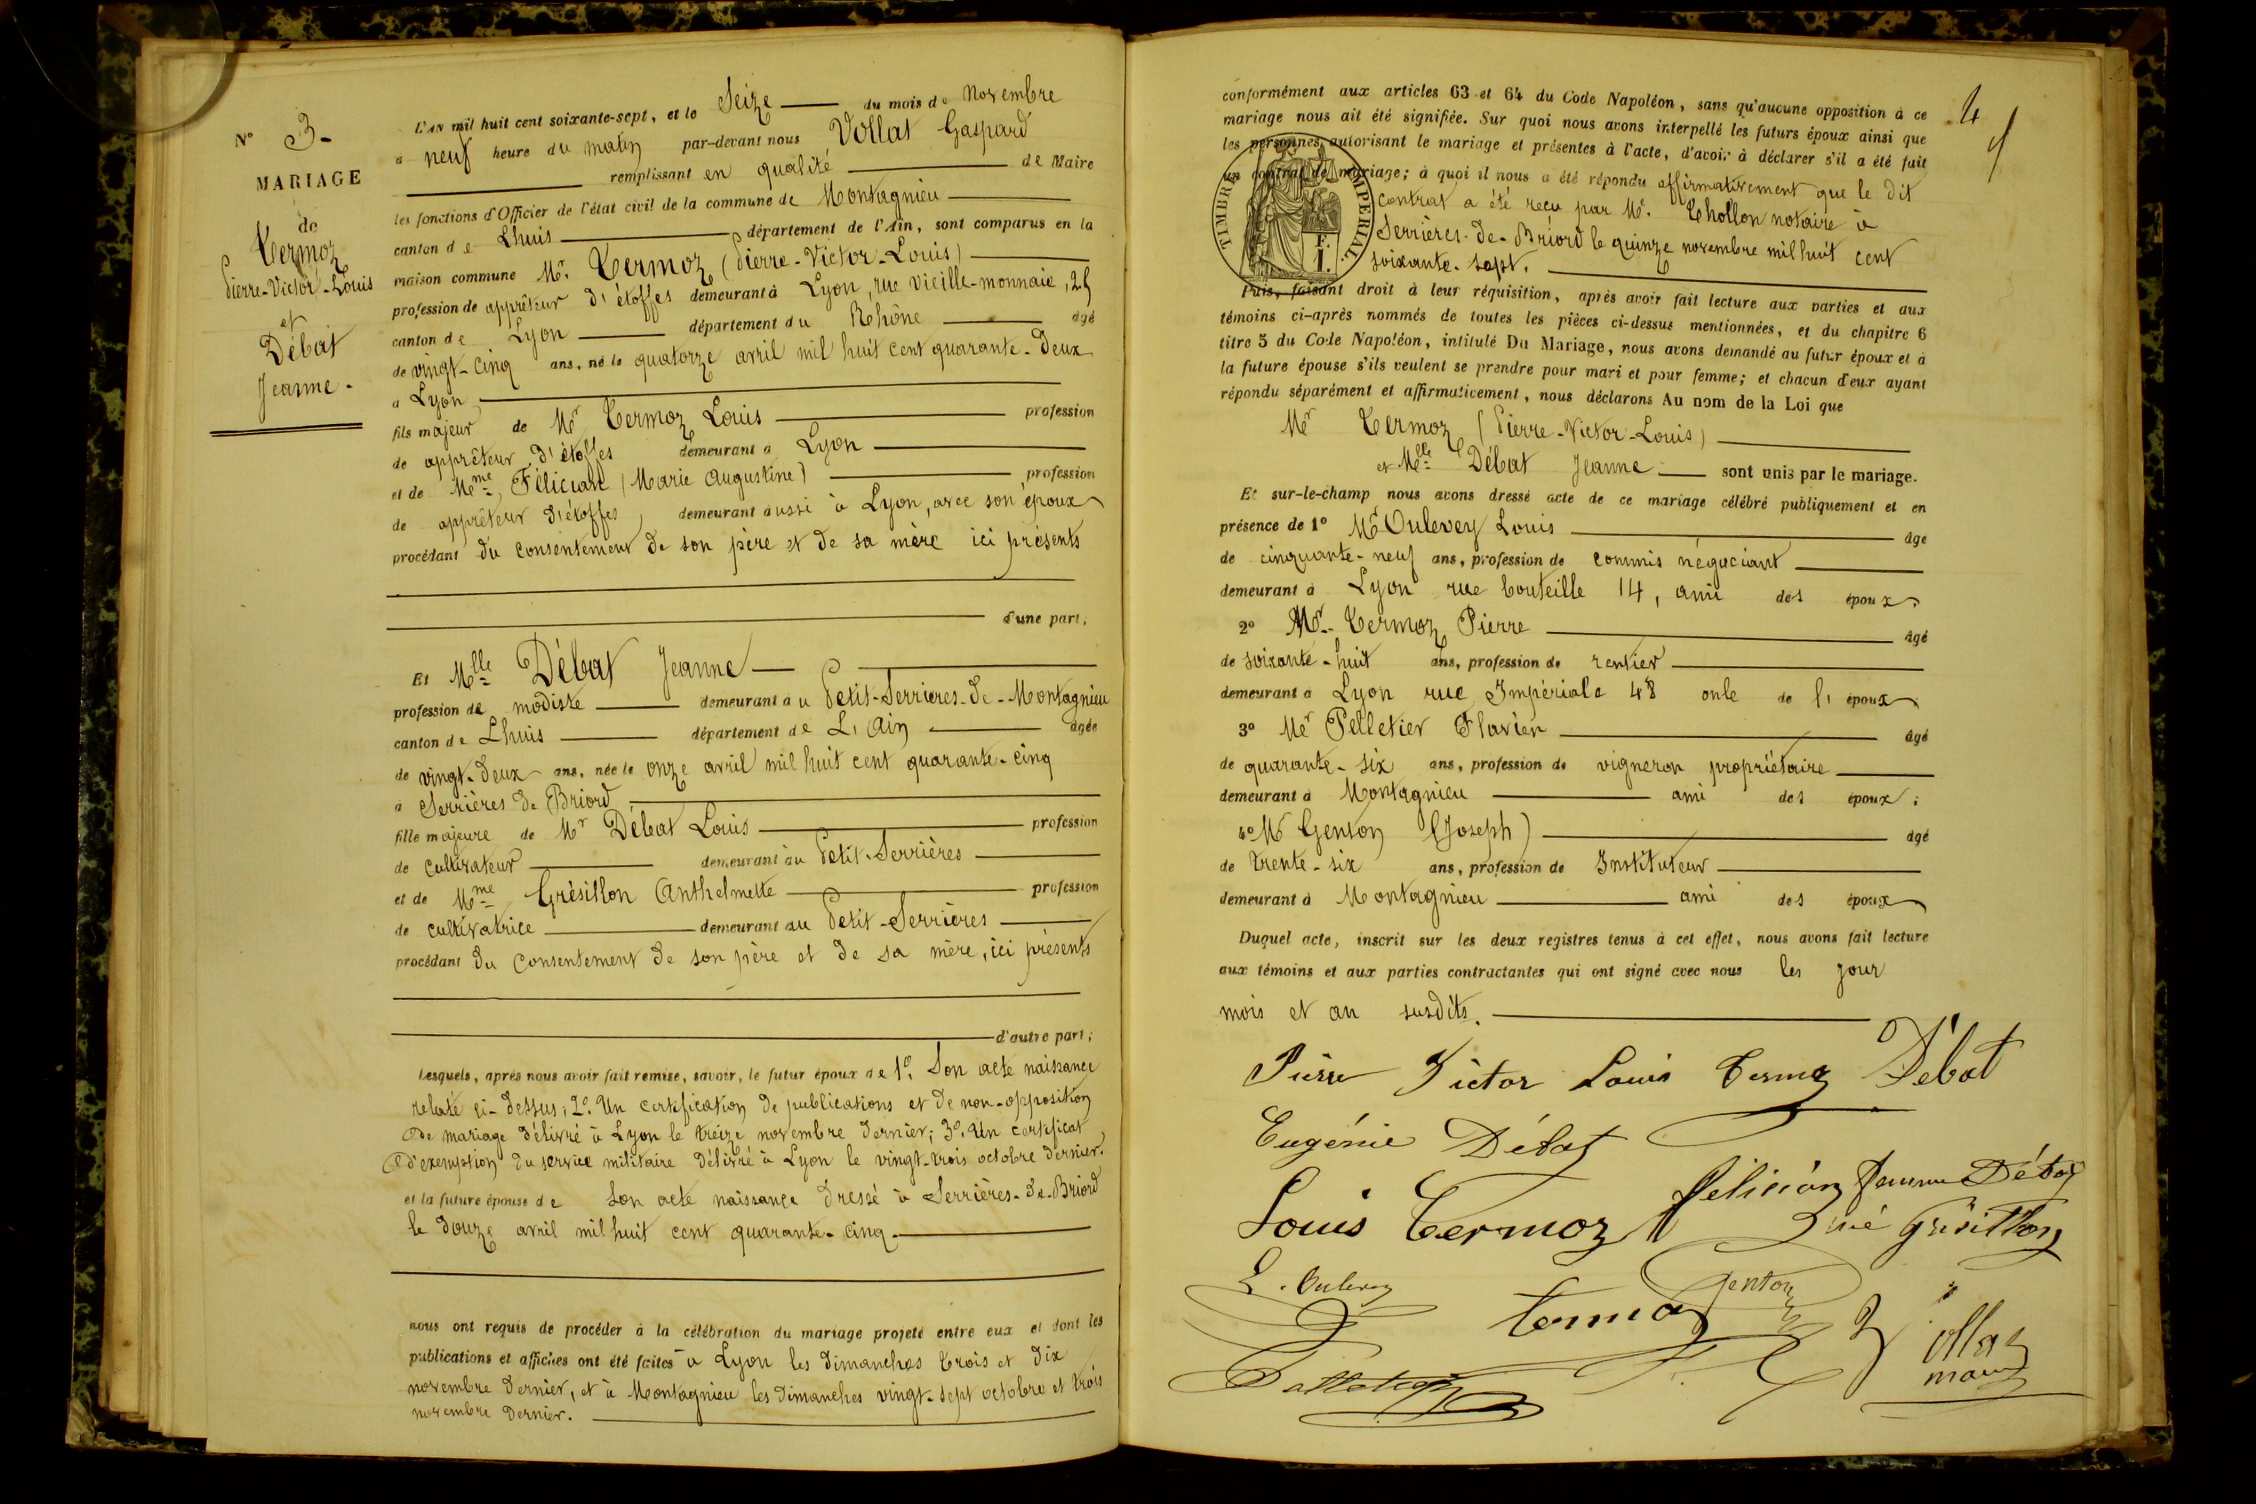 N° 3.
MARIAGE
de
Termoz
Pierre-Victor-Louis
et
Débat
Jeanne.
L'AN mil huit cent soixante-sept, et le Seize du mois de Novembre
à neuf heure du matin par-devant nous Vollat Gaspard
remplissant en qualité de Maire
les fonctions d'Officier de l'état civil de la commune de Montagnieu
canton de Lhuis département de l'Ain, sont comparus en la
maison commune Mr. Termoz (Pierre-Victor-Louis)
profession de apprêteur d'étoffes demeurant à Lyon, rue Vieille-monnaie, 25
canton de Lyon département du Rhône âgé
de vingt-cinq ans, né le quatorze avril mil huit cent quarante-deux
à Lyon
fils majeur de Mr Termoz Louis profession
de apprêteur d'étoffes demeurant à Lyon
et de Mme Félician (Marie Augustine) profession
de apprêteur d'étoffes demeurant aussi à Lyon, avec son époux
procédant du consentement de son père et de sa mère ici présents
d'une part,
Et Mlle Débat Jeanne
profession de modiste demeurant au Petit-Serrières-de-Montagnieu
canton de Lhuis département de L'Ain âgée
de vingt-deux ans, née le onze avril mil huit cent quarante-cinq
à Serrières de Briord
fille majeure de Mr Débat Louis profession
de cultivateur demeurant au Petit-Serrières
et de Mme Grésillon Anthelmette profession
de cultivatrice demeurant au Petit-Serrières
procédant du consentement de son père et de sa mère, ici présents
d'autre part;
Lesquels, après nous avoir fait remise, savoir, le futur époux de 1°. Son acte naissance
relaté ci-dessus; 2°. Un certification de publications et de non-opposition
de mariage délivré à Lyon le treize novembre dernier; 3°. Un certificat
d'exemption du service militaire délivré à Lyon le vingt-trois octobre dernier.
et la future épouse de Son acte naissance dressé à Serrières-de-Briord
le douze avril mil huit cent quarante-cinq.
nous ont requis de procéder à la célébration du mariage projeté entre eux et dont les
publications et affiches ont été faites à Lyon les dimanches trois et dix
novembre dernier, et à Montagnieu les dimanches vingt-sept octobre et trois
novembre dernier.
4
conformément aux articles 63 et 64 du Code Napoléon, sans qu'aucune opposition à ce
mariage nous ait été signifiée. Sur quoi nous avons interpellé les futurs époux ainsi que
les personnes autorisant le mariage et présentes à l'acte, d'avoir à déclarer s'il a été fait
un contrat de mariage; à quoi il nous a été répondu affirmativement que le dit
contrat a été reçu par Me. Thollon notaire à
Serrières-de-Briord le quinze novembre mil huit cent
soixante-sept.
TIMBRE IMPERIAL.
F.
1.
Puis, faisant droit à leur réquisition, après avoir fait lecture aux parties et aux
témoins ci-après nommés de toutes les pièces ci-dessus mentionnées, et du chapitre 6
titre 5 du Code Napoléon, intitulé Du Mariage, nous avons demandé au futur époux et à
la future épouse s'ils veulent se prendre pour mari et pour femme; et chacun d'eux ayant
répondu séparément et affirmativement, nous déclarons Au nom de la Loi que
Mr Termoz (Pierre-Victor-Louis)
et Mlle Débat Jeanne sont unis par le mariage.
Et sur-le-champ nous avons dressé acte de ce mariage célébré publiquement et en
présence de 1° Mr Oulevey Louis âge
de cinquante-neuf ans, profession de commis négociant
demeurant à Lyon rue bouteille 14, ami des époux.
2° Mr. Termoz Pierre âgé
de soixante-huit ans, profession de rentier
demeurant à Lyon rue Impériale 48 onle de l' époux
3° Mr Pelletier Flavien âgé
de quarante-six ans, profession de vigneron propriétaire
demeurant à Montagnieu ami des époux;
4° Mr Genton (Joseph) âgé
de trente-six ans, profession de Instituteur
demeurant à Montagnieu ami des époux
Duquel acte, inscrit sur les deux registres tenus à cet effet, nous avons fait lecture
aux témoins et aux parties contractantes qui ont signé avec nous les jour
mois et an susdits.
Pierre Victor Louis Termoz Débat
Eugénie Débat
Louis Termoz Félicián femme Débat
né Grésillon
L. Oulevey Termoz Genton
Vollat
maire
Pelletier